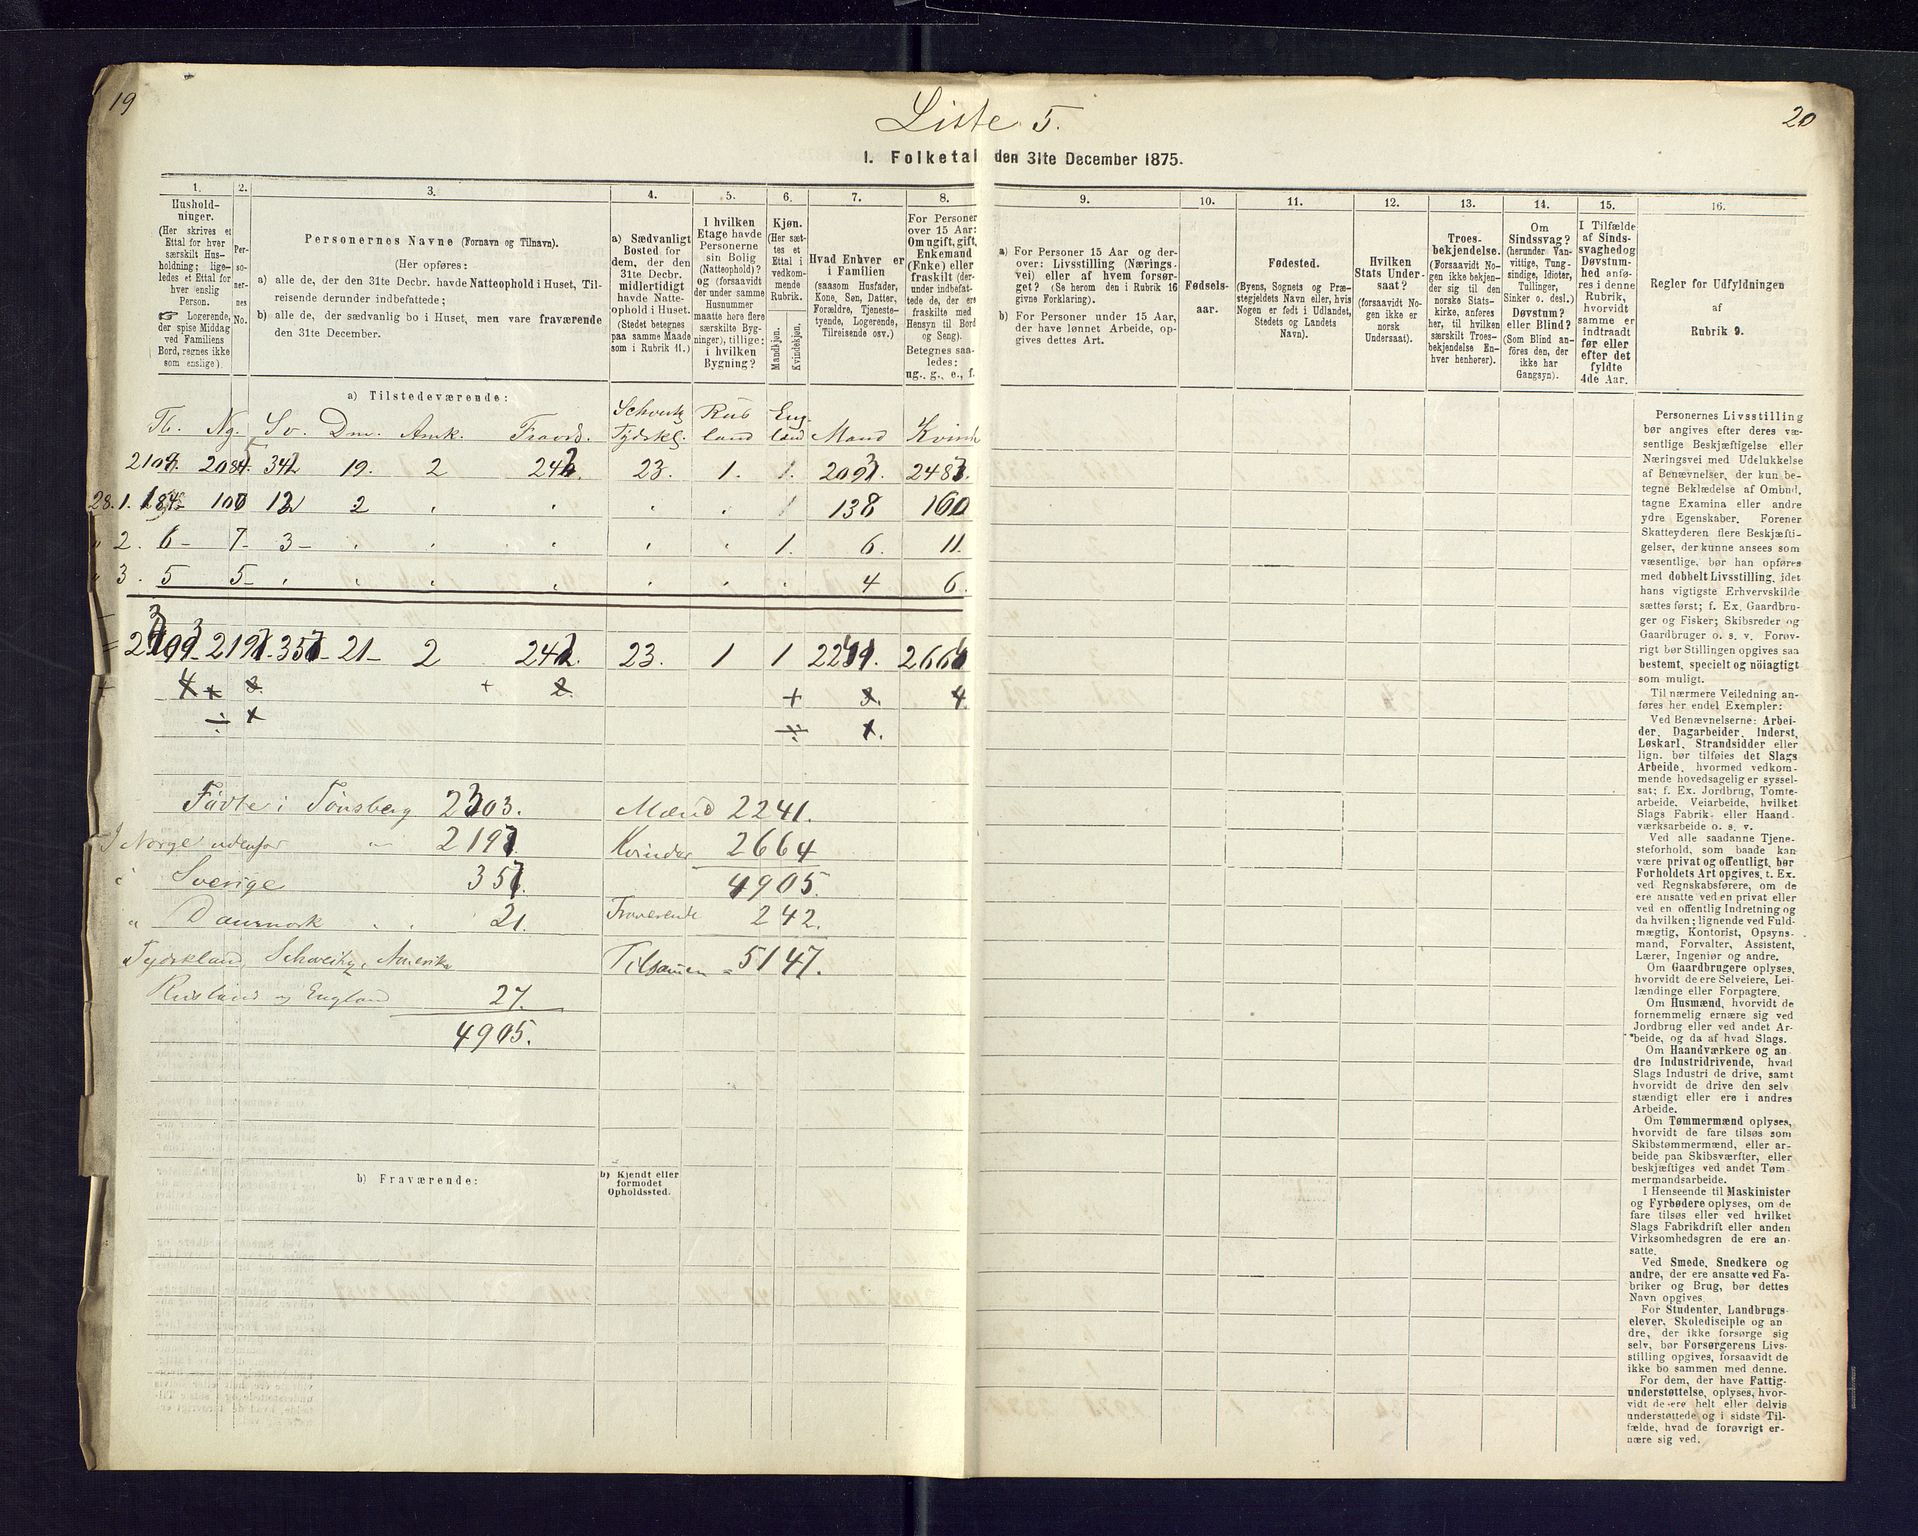 19
Liste 5.
20
1. Folketal den 31te December 1875.
1. 2. 3. 4. 5. 6. 7. 8. 9. 10. 11. 12. 13. 14. 15. 16.
Husholdninger.
(Her skrives et
Ettal for hver
særskilt Husholdning;
ligeledes et Ettal for
hver enslig
Person.
☞ Logerende,
der spise Middag
ved Familiens
Bord, regnes ikke
som enslige).
Personernes No.
Personernes Navne (Fornavn og Tilnavn).
(Her opføres:
a) alle de, der den 31te Decbr. havde Natteophold i Huset, Tilreisende derunder indbefattede;
b) alle de, der sædvanlig bo i Huset, men vare fraværende
den 31te December.
a) Sædvanligt
Bosted for
dem, der den
31te Decbr.
midlertidigt
havde Natteophold
i Huset.
(Stedet betegnes
paa samme Maade
som i Rubrik 11.)
I hvilken
Etage havde
Personerne
sin Bolig
(Natteophold)?
og (forsaavidt
der under samme
Husnummer
maatte høre flere
særskilte Bygninger),
tillige:
i hvilken
Bygning?
Kjøn.
(Her sættes
et Ettal i
vedkommende
Rubrik.
Mandkjøn.
Kvindekjøn.
Hvad Enhver er
i Familien
(saasom Husfader,
Kone, Søn, Datter,
Forældre, Tjenestetyende,
Logerende,
Tilreisende osv.)
For Personer
over 15 Aar:
Om ugift, gift,
Enkemand
(Enke) eller
fraskilt (derunder
indbefattede
de, der ere
fraskilte med
Hensyn til Bord
og Seng).
Betegnes saaledes:
ug., g., e., f.
a) For Personer 15 Aar og derover:
Livsstilling (Næringsvei)
eller af hvem forsørget?
(Se herom den i Rubrik 16
givne Forklaring).
b) For Personer under 15 Aar,
der have lønnet Arbeide, opgives
dettes Art.
Fødselsaar.
Fødested.
(Byens, Sognets og Præstegjeldets
Navn eller, hvis
Nogen er født i Udlandet,
Stedets og Landets
Navn).
Hvilken
Stats Undersaat?
(forsaavidt Nogen
ikke er
norsk
Undersaat).
Troesbekjendelse.
(Forsaavidt Nogen
ikke bekjender
sig til den
norske Statskirke,
anføres
her, til hvilken
særskilt Troesbekjendelse
Enhver
henhører).
Om
Sindssvag?
(herunder Vanvittige,
Tungsindige,
Idioter,
Tullinger,
Sinker o. desl.)
Døvstum?
eller Blind?
(Som Blind anføres
den, der
ikke har
Gangsyn).
I Tilfælde
af Sindssvaghed
og
Døvstumhed
anføres
i denne
Rubrik,
hvorvidt
samme er
indtraadt
før eller
efter det
fyldte
4de Aar.
Regler for Udfyldningen
af
Rubrik 9.
a) Tilstedeværende:
Tb. Ng. Sv. Dm. Amk. Fravd. Schveitz Tydskl. Rusland England Mand Kvinder
19. 2 23. 1. 1.
28. 1. 2 1 138 160
" 2. 6 7 3 1. 6. 11.
" 3. 5 5 4 6.
21 2 242. 23. 1 1
Fødte i Tønsberg 2303.
I Norge udenfor " 2197.
" Sverige 357.
" Danmark " 21.
" Tydskland, Schveitz, Amerika
Rusland og England 27.
4905.
Mænd 2241.
Kvinder 2664
4905.
Fraværende 242.
Tilsamen = 5147.
b) Fraværende:
b) Kjendt eller
formodet
Opholdssted.
Personernes Livsstilling
bør angives efter deres væsentlige
Beskjæftigelse eller
Næringsvei med Udelukkelse
af Benævnelser, der kun betegne
Beklædelse af Ombud,
tagne Examina eller andre
ydre Egenskaber. Forener
Skatteyderen flere Beskjæftigelser,
der kunne ansees som
væsentlige, bør han opføres
med dobbelt Livsstilling, idet
hans vigtigste Erhvervskilde
sættes først; f. Ex. Gaardbruger
og Fisker; Skibsreder og
Gaardbruger o. s. v. Forøvrigt
bør Stillingen opgives saa
bestemt, specielt og nøiagtigt
som muligt.
Til nærmere Veiledning anføres
her endel Exempler:
Ved Benævnelserne: Arbeider,
Dagarbeider, Inderst,
Løskarl, Strandsidder eller
lign. bør tilføies det Slags
Arbeide, hvormed vedkommende
hovedsagelig er sysselsat;
f. Ex. Jordbrug, Tomtearbeide,
Veiarbeide, hvilket
Slags Fabrik- eller Haandværksarbeide
o. s. v.
Ved alle saadanne Tjenesteforhold,
som baade kan
være privat og offentligt, bør
Forholdets Art opgives, t. Ex.
ved Regnskabsførere, om de
ere ansatte ved en privat eller
ved en offentlig Indretning og
da hvilken; lignende ved Fuldmægtig,
Kontorist, Opsynsmand,
Forvalter, Assistent,
Lærer, Ingeniør og andre.
Om Gaardbrugere oplyses,
hvorvidt de ere Selveiere, Leilændinge
eller Forpagtere.
Om Husmænd, hvorvidt de
fornemmelig ernære sig ved
Jordbrug eller ved andet Arbeide,
og da af hvad Slags.
Om Haandværkere og andre
Industridrivende, hvad
Slags Industri de drive, samt
hvorvidt de drive den selvstændigt
eller ere i andres
Arbeide.
Om Tømmermænd oplyses,
hvorvidt de fare tilsøs som
Skibstømmermænd, eller arbeide
paa Skibsværfter, eller
beskjæftiges ved andet Tømmermandsarbeide.
I Henseende til Maskinister
og Fyrbødere oplyses, om de
fare tilsøs eller ved hvilket
Slags Fabrikdrift eller anden
Virksomhedsgren de ere ansatte.
Ved Smede, Snedkere og
andre, der ere ansatte ved Fabriker
og Brug, bør dettes
Navn opgives.
For Studenter, Landbrugselever,
Skoledisciple og andre,
der ikke forsørge sig
selv, bør Forsørgerens Livsstilling
opgives, forsaavidt de
ikke bo sammen med denne.
For dem, der have Fattigunderstøttelse,
oplyses, hvorvidt
de ere helt eller delvis
understøttede og i sidste Tilfælde,
hvad de forøvrigt ernære
sig ved.